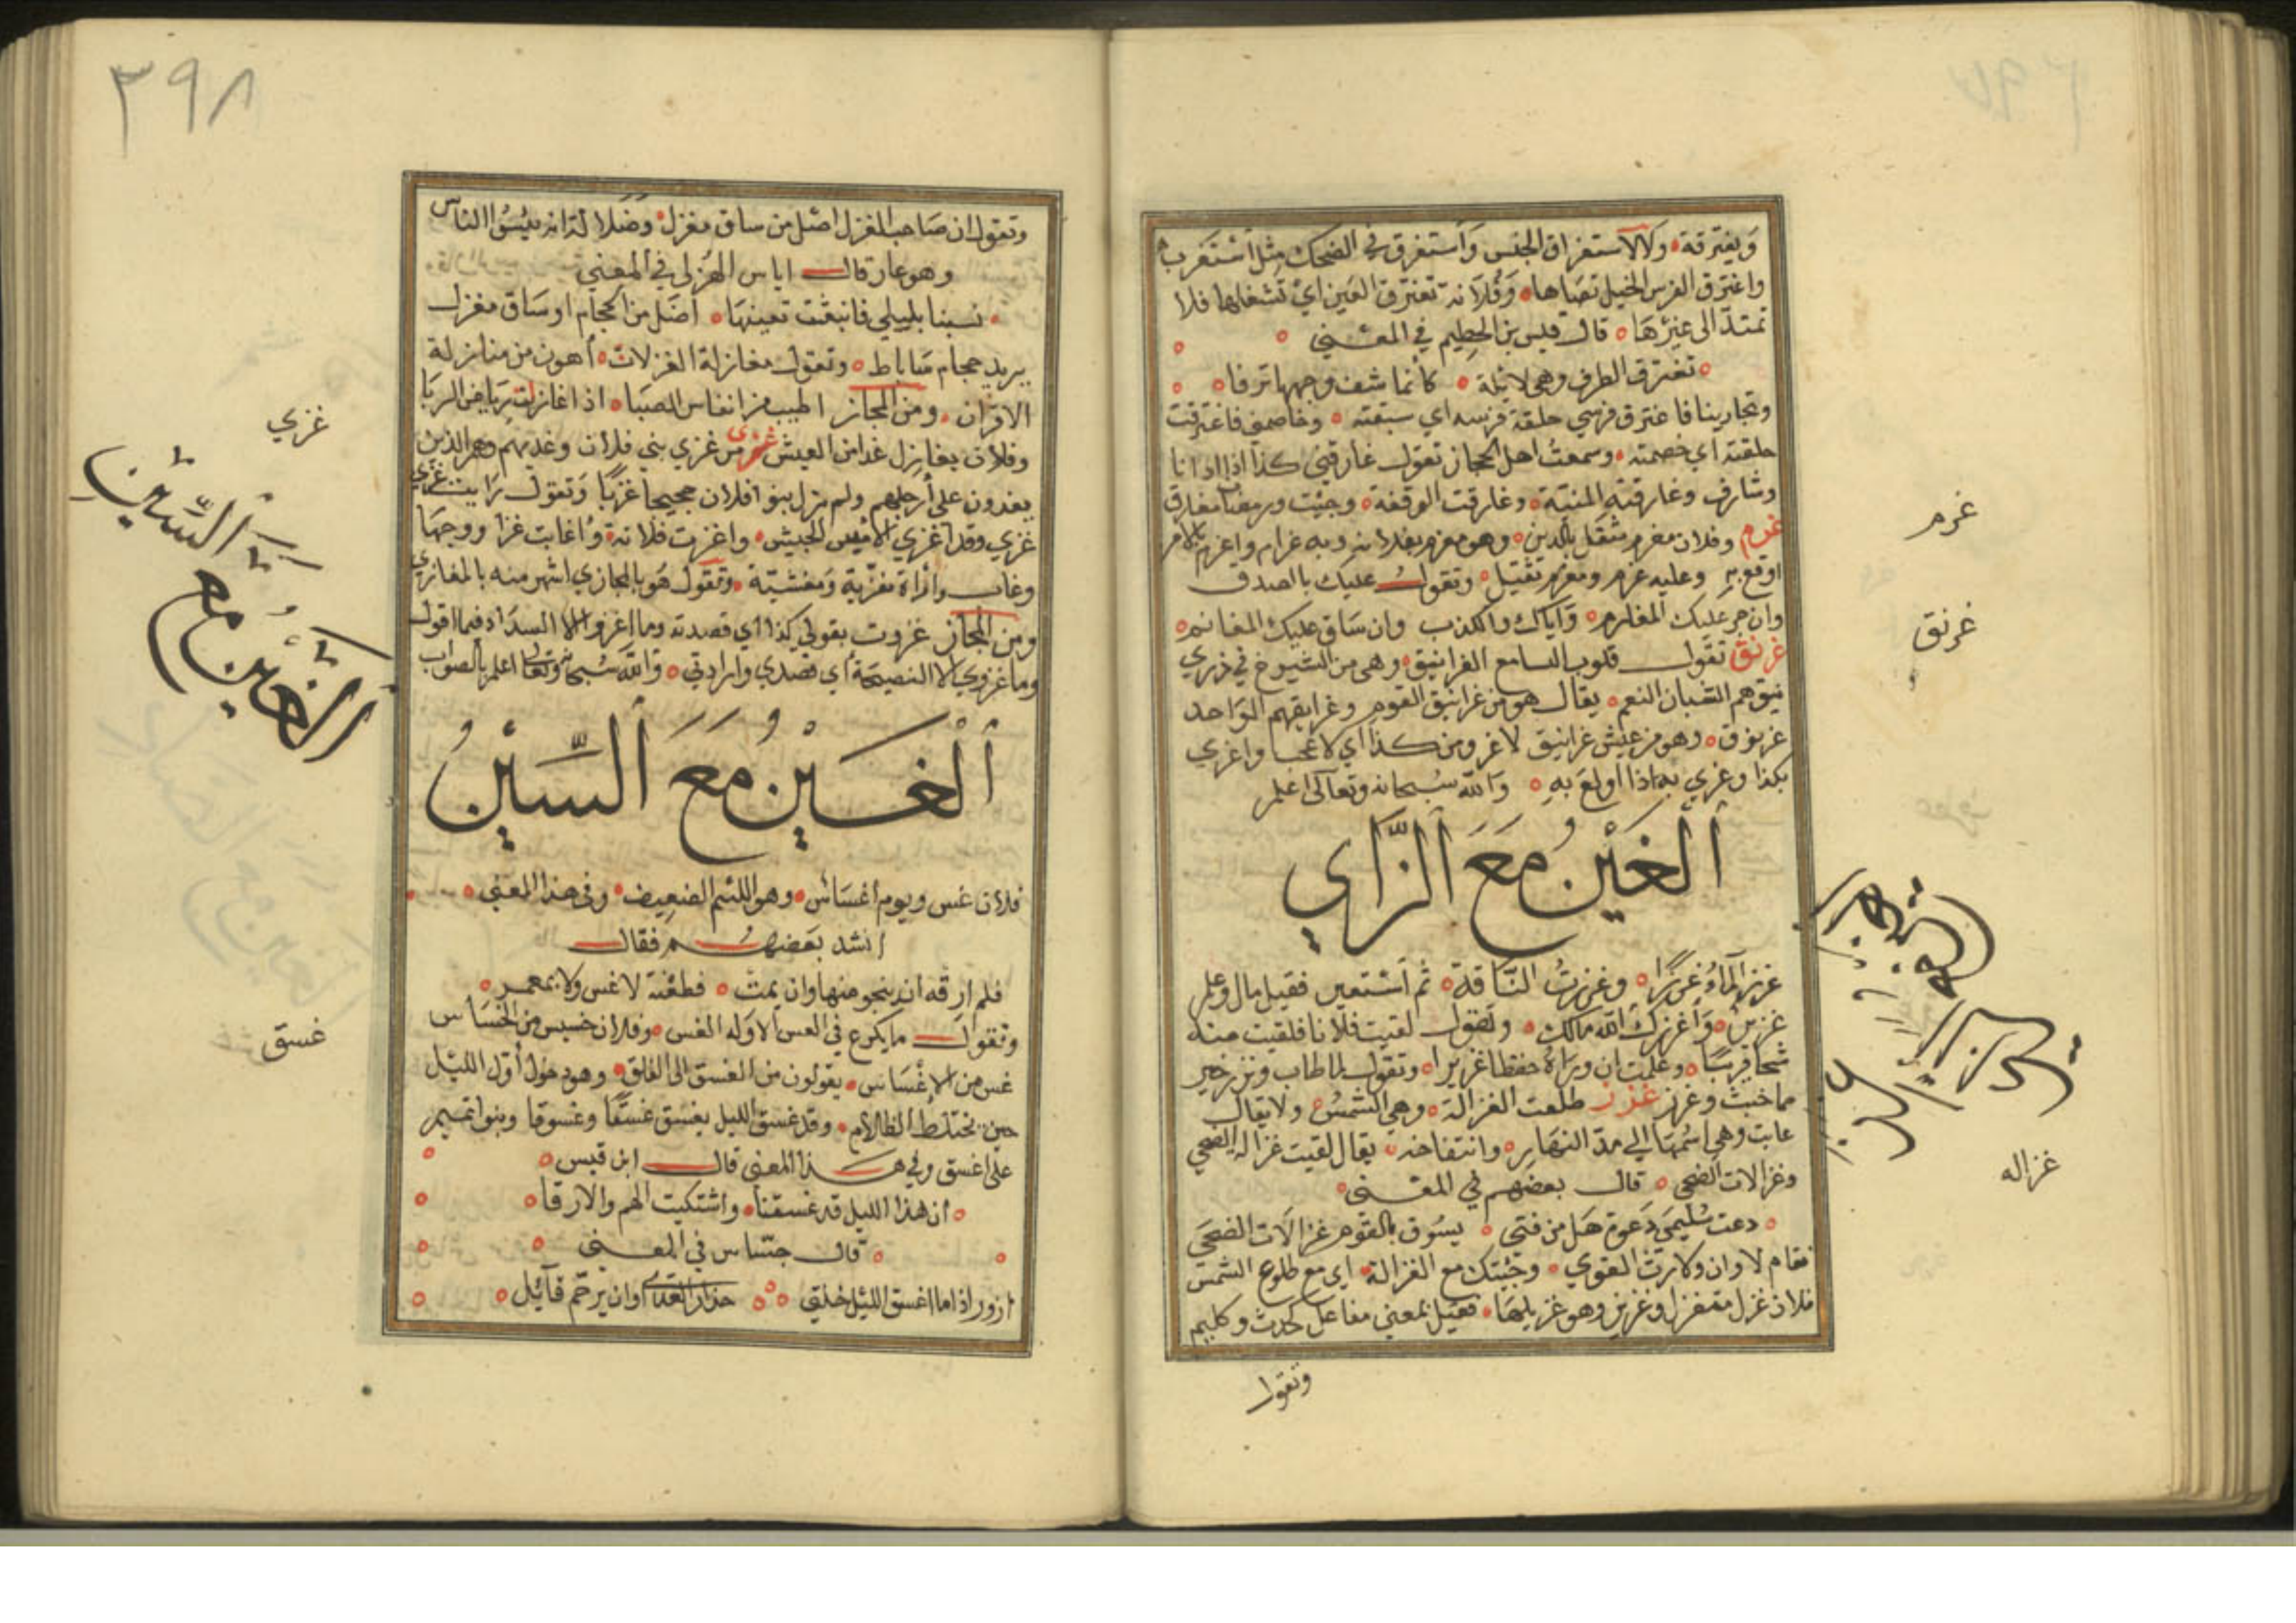 ويغترقة ولالاستغراق الجنس واستغرق في الضحك مثل استغرب
واغترق الفرس الخيل تصاها وفلانة تغترق العين اي تشغلها فلا
تمتد الى غيرها قال قيس بن الحطيم في المعنى
تغترق الطرف وهي لاهية كانما شف وجهها نزفا
وتجارينا فاغترق فرسي حلقة فرسه اي سبقته وخاصمني فاغترقت
حلقته اي خصمته وسمعت اهل الحجاز تقول غارقني كذا اذا دانا
وشارف وغارقته المنية وغارقت الوقفة وجئت ورمضان مغارق
غرم وفلان مغرم مثقل بالدين وهو مغرم بفلانة وبه غرام واغرم بالامر
اوقع به وعليه غرم ومغرم ثقيل وتقول عليك بالصدق
وان جر عليك المغارم واياك والكذب وان ساق عليك المغانم
غرنق تقول قلوب السامع الغرانيق وهي من الشيوخ في
هم الشبان النعم يقال هو من غرانيق القوم وغرانقهم الواحد
غرنوق وهو من عيش غرانيق لا غرو من كذا اي لا عجب واغري
بكذا وغري به اذا اولع به والله سبحانه وتعالى اعلم
الغين مع الزاي
غزر الماء غزرا وغزرت الناقة ثم استعير فقيل مال وعلم
غزير واغزرك الله مالك وتقول لقيت فلانا فلقيت منه
شحا قريبا وعلمت ان وراه حفظا غزيرا وتقول لما طاب ونزر خير
مما خبث وغزر غزز طلعت الغزالة وهي الشمس ولا يقال
غابت وهي اسمها الى مد النهار وانتفاخه يقال لقيت غزالة الضحى
وغزالات الضحى قال بعضهم في المعنى
دعت سليمى دعوة هل من فتى يسوق بالقوم غزالات الضحى
فقام لا وان ولا رث القوي وجئتك مع الغزالة اي مع طلوع الشمس
فلان غزل متغزل وهو غزيلها فعيل بمعنى مفاعل كحدث وكليم
وتقول
غرم
غرنق
الغين مع الزاي
غزاله
٣٩٨
وتقول ان صاحب المغزل اضل من ساق مغزل وضلالته انه يكسو الناس
وهو عار قال اياس الهزلي في المعنى
نسبنا بليلى فانبعثت تعيبها اضل من الحجام او ساق مغزل
يريد حجام ساباط وتقول مغازلة الغزلات اهون من منازلة
الاقران ومن المجاز اطيب من انفاس الصبا اذا غازلت رياض الربا
وفلان يغازل غدا من العيش غزي من غزي بني فلان وغديهم وهم الذين
يغدون على ارجلهم ولم يزل بنوا فلان حجيجا غزيا وتقول رايت غزي
غزي وقد اغزي الامير الجيش واغزت فلانة واغابت غزا زوجها
وغاب وامراة مغزية ومغشية وتقول هو بالمجازي اشهر منه بالمغازي
ومن المجاز غزوت بقولي كذا اي قصدته وما اغزو الا السداد فيما اقول
وما غزوي الا النصيحة اي قصدي وارادتي والله سبحانه وتعالى اعلم بالصواب
الغين مع السين
فلان غس ويوم اغساس وهو اللئيم الضعيف وفي هذا المعنى
انشد بعضهم فقال
فلم ارقه ان ينج منها وان يمت فطعنة لا غس ولا بمغمر
وتقول ما يكرع في العس الا وله الغس وفلان خسيس من الخساس
غس من الاغساس يقولون من الغسق الى الفلق وهو دخول اول الليل
حين يختلط الظلام وقد غسق الليل يغسق غسقا وغسوقا وبنوا تميم
على اغسق وفي هذا المعنى قال ابن قيس
ان هذا الليل قد غسقنا واشتكيت الهم والارقا
قال جساس في المعنى
ازور اذا ما اغسق الليل خلتي حذار العدى او ان يرجم قائل
غزي
الغين مع السين
غسق